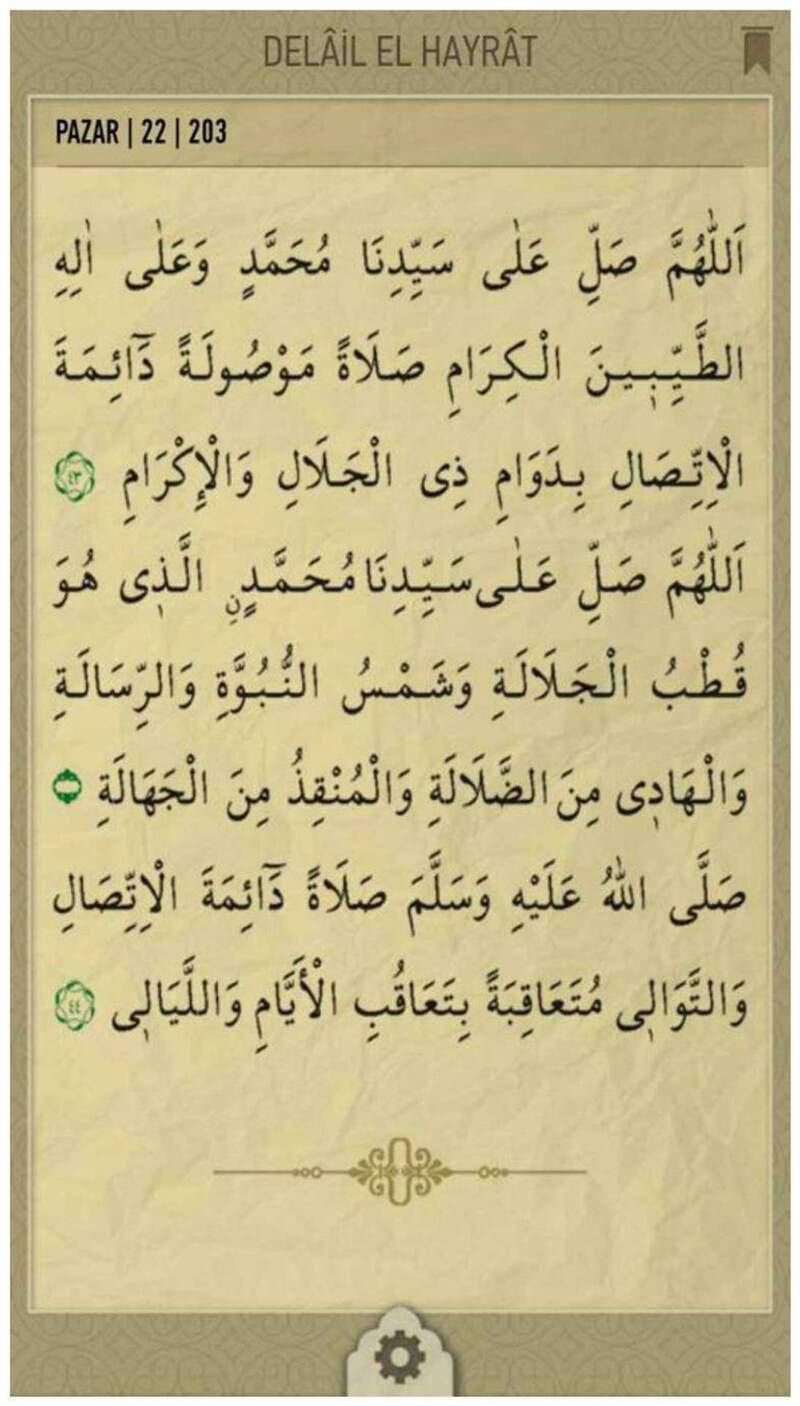 DELÂİL EL HAYRÂT
PAZAR | 22 | 203
اَللّٰهُمَّ صَلِّ عَلٰى سَيِّدِنَا مُحَمَّدٍ وَعَلٰى اٰلِهِ
الطَّيِّبٖينَ الْكِرَامِ صَلَاةً مَوْصُولَةً دَٓائِمَةَ
الْاِتِّصَالِ بِدَوَامِ ذِى الْجَلَالِ وَالْإِكْرَامِ ٤٣
اَللّٰهُمَّ صَلِّ عَلٰى سَيِّدِنَا مُحَمَّدٍ نِ الَّذٖى هُوَ
قُطْبُ الْجَلَالَةِ وَشَمْسُ النُّبُوَّةِ وَالرِّسَالَةِ
وَالْهَادٖى مِنَ الضَّلَالَةِ وَالْمُنْقِذُ مِنَ الْجَهَالَةِ
صَلَّى اللهُ عَلَيْهِ وَسَلَّمَ صَلَاةً دَٓائِمَةَ الْاِتِّصَالِ
وَالتَّوَالٖى مُتَعَاقِبَةً بِتَعَاقُبِ الْأَيَّامِ وَاللَّيَالٖى ٤٤